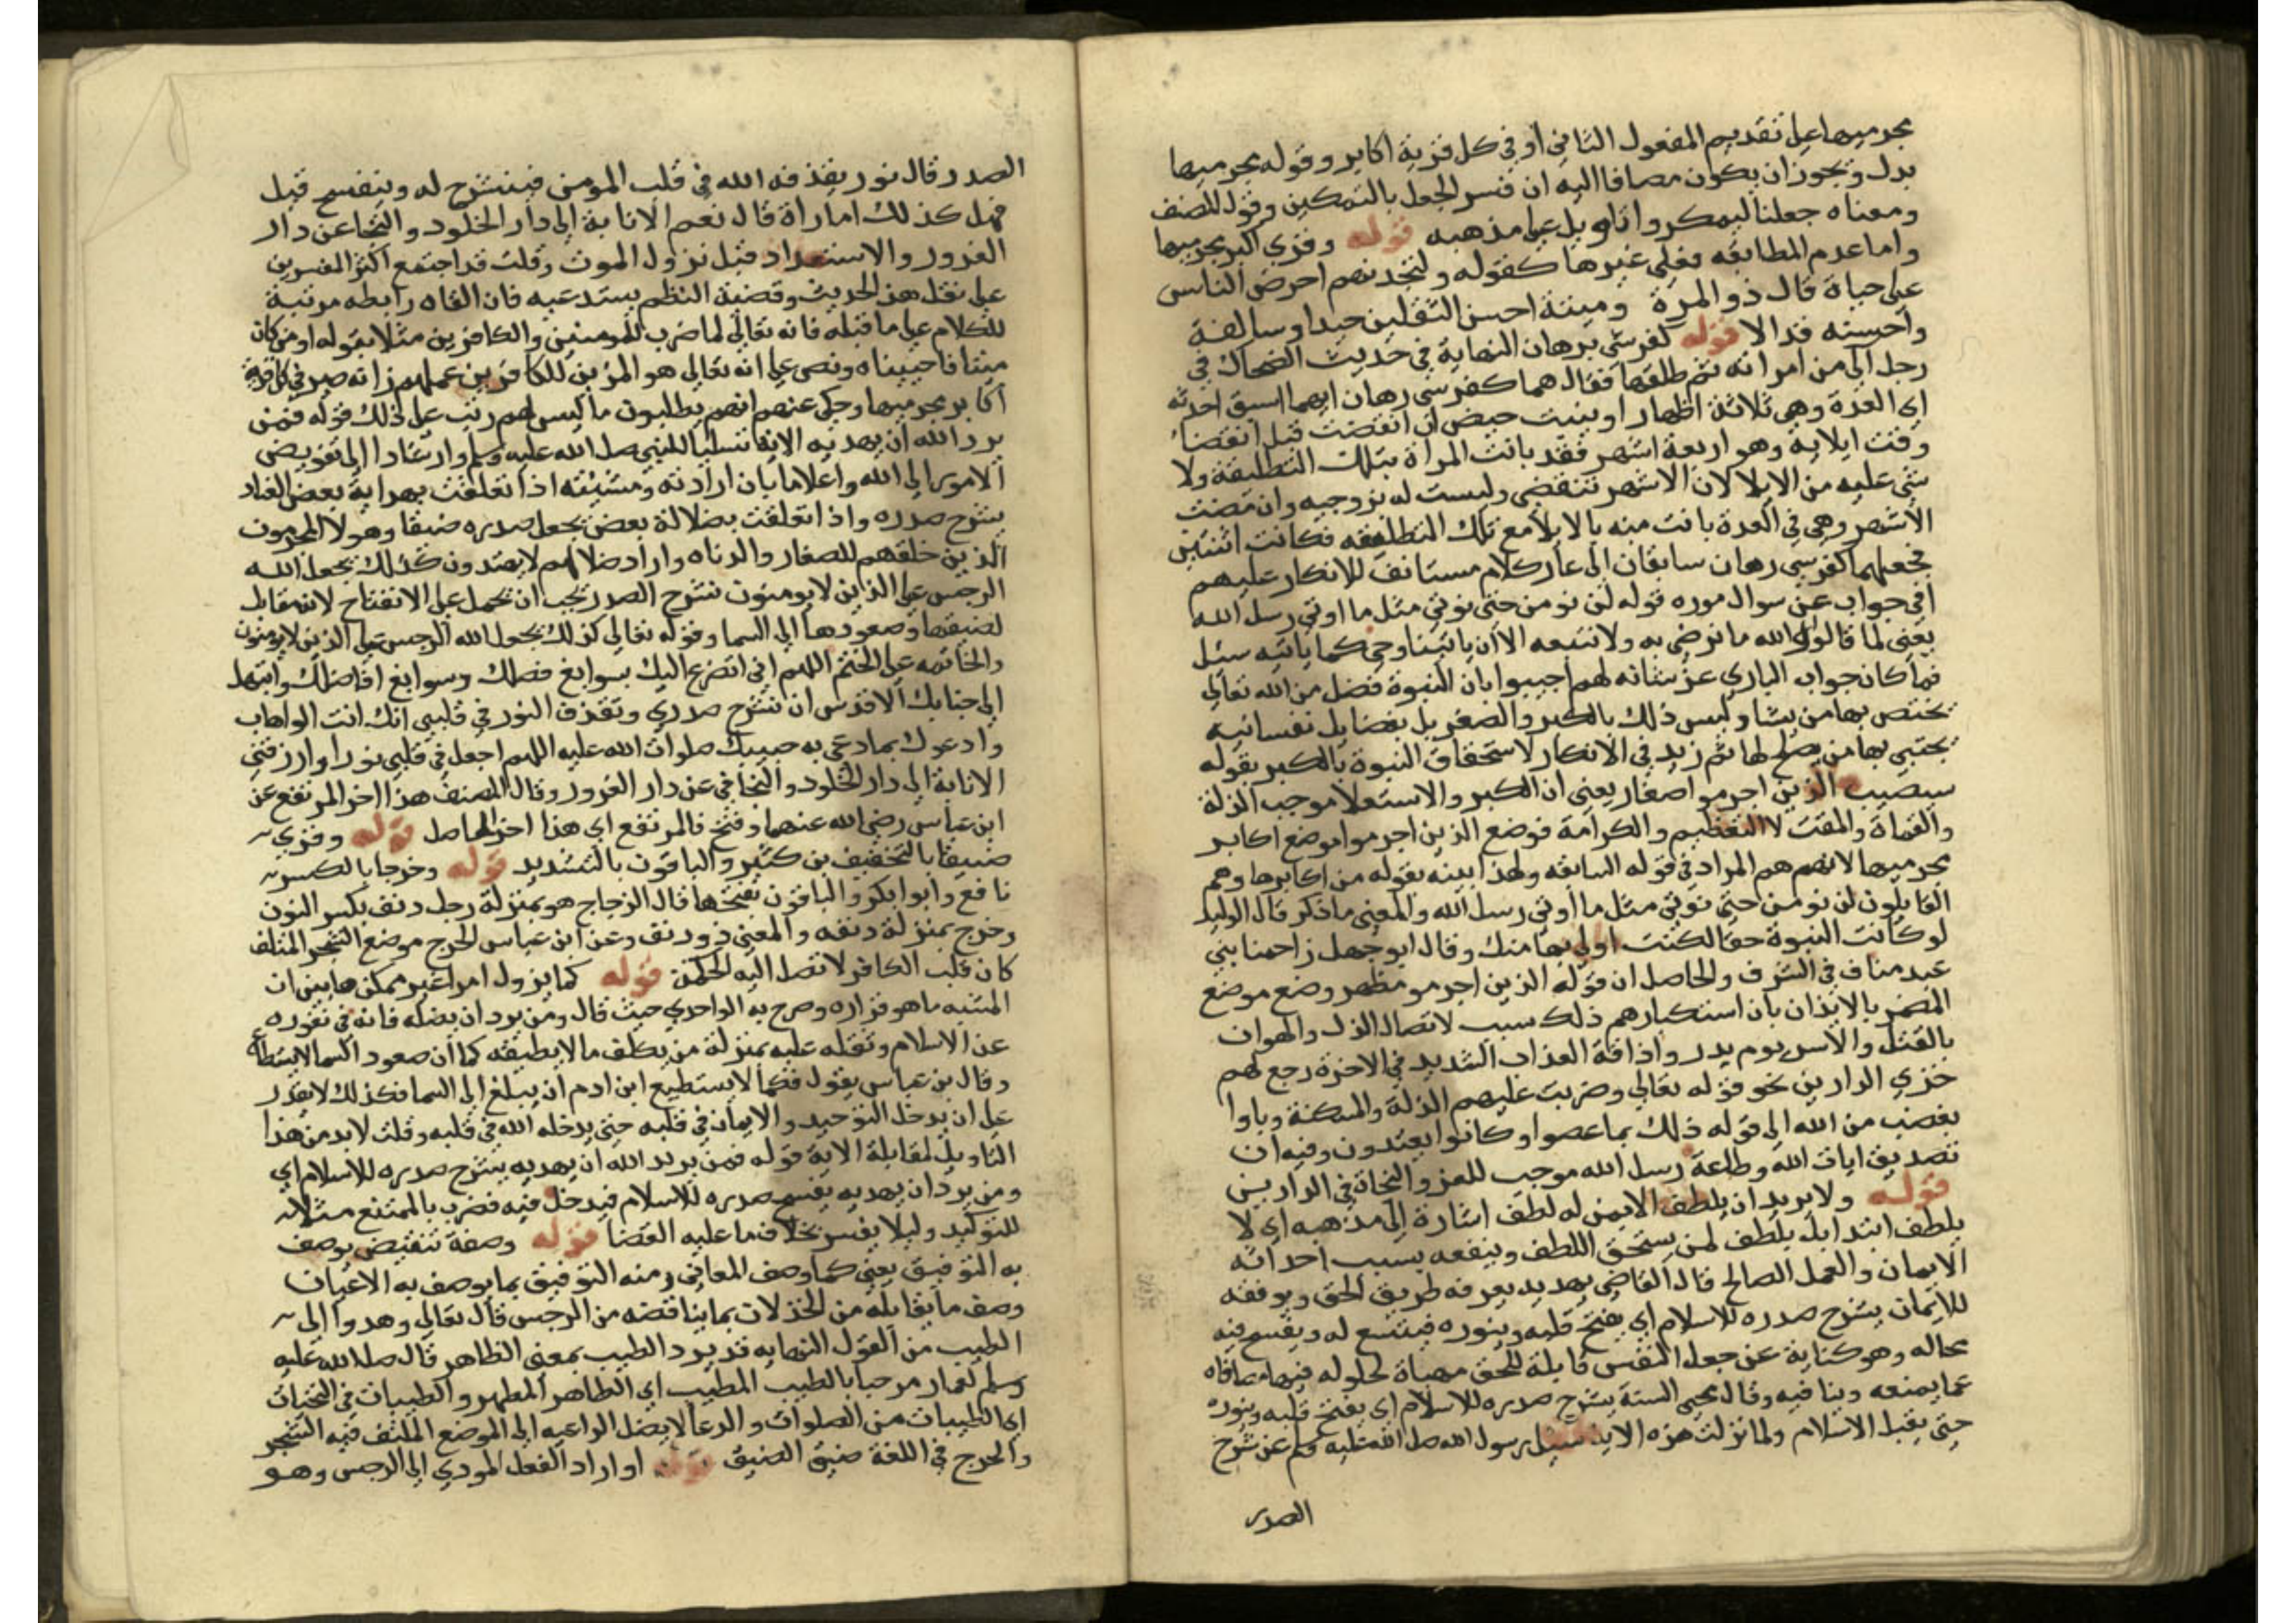 مجرميها على تقديم المفعول الثاني أو في كل قرية اكابر وقوله مجرميها
بدل ويجوز ان يكون مضافا اليه ان فسر الجعل بالتمكين وقول المصنف
ومعناه جعلنا ليمكروا تاويل على مذهبه قوله وقري اكبر مجرميها
واما عدم المطابقه فعلى غيرها كقوله ولتجدنهم احرص الناس
على حياة قال ذو الرمة ومية احسن الثقلين جيدا وسالفة
واحسنه قذالا قوله كفرسي رهان النهاية في حديث الضحاك في
رجل الي من امراته ثم طلقها فقال هما كفرسي رهان ايهما اسبق اخذ به
اي العدة وهي ثلاثة اطهار او حيض ان انقضت قبل انقضا
وقت ايلايه وهو اربعة اشهر فقد بانت المراة بتلك التطليقة ولا
شي عليه من الايلا لان الاشهر تنقضي وليست له بزوجيه وان مضت
الاشهر وهي في العدة بانت منه بالايلا مع تلك التطليقه فكانت اثنتين
فجعلهما كفرسي رهان سابقان الى كلام مستانف للانكار عليهم
اي جواب عن سوال موره قوله لن نومن حتى نوتي مثل ما اوتي رسل الله
يعني لما قالوا والله ما نرضى به ولا نتبعه الا ان ياتينا وحي كما ياتيه سئل
فما كان جواب الباري عز شانه لهم اجيبوا بان النبوة فضل من الله تعالى
يختص بها من يشا وليس ذلك بالكبر والصغر بل بفضايل نفسانيه
يجتبي بها من يصلح لها ثم زيد في الانكار لاستحقاق النبوة بالكبر بقوله
سيصيب الذين اجرموا صغار يعني ان الكبر والاستعلا موجب المذلة
والقماة والمقت لا التعظيم والكرامة فوضع الذين اجرموا موضع اكابر
مجرميها لانهم هم المراد في قوله السابقه ولهذا بينه بقوله من اكابرها وهم
القايلون لن نومن حتى نوتي مثل ما أوتي رسل الله والمعنى ما ذكر قال الوليد
لو كانت النبوة حقا لكنت اولى بها منك وقال ابو جهل زاحمنا بني
عبد مناف في الشرف والحاصل ان قوله الذين اجرموا مظهر وضع موضع
المضمر بالايذان بان استكبارهم ذلك سبب لاتصال الذل والهوان
بالقتل والاسر يوم بدر واذاقة العذاب الشديد في الاخرة رجع لهم
خزي الدارين نحو قوله تعالى وضربت عليهم الذلة والمسكنة وباوا
بغضب من الله الى قوله ذلك بما عصوا وكانوا يعتدون وفيه ان
تصديق ايات الله وطاعة رسل الله موجب للعز والنجاة في الدارين
قوله ولا يريد ان يلطف الا بمن له لطف اشارة إلى مذهبه اي لا
يلطف ابتدا بل يلطف لمن يستحق اللطف وينفعه بسبب احداثه
الايمان والعمل الصالح قال القاضي يهديه يعرفه طريق الحق ويوفقه
للايمان يشرح صدره للاسلام اي يفتح قلبه وينوره فيتسع له ويفسح فيه
مجاله وهو كناية عن جعل النفس قابلة للحق مهياة لحلوله فيها مصفاة
عما يمنعه وينافيه وقال محيي السنة يشرح صدره للاسلام اي يفتح قلبه وينوره
حتى يقبل الاسلام ولما نزلت هذه الاية سيل رسول الله صلى الله عليه وسلم عن شرح
الصدر
الصدر وقال نور يقذفه الله في قلب المومن فينشرح له وينفسح قيل
فهل كذلك امارة قال نعم الانابة إلى دار الخلود والتجافي عن دار
الغرور والاستعداد قبل نزول الموت وقلت قد اجتمع اكثر المفسرين
على نقل هذا الحديث وقضية النظم يستدعيه فان الفاه رابطه مرتبة
للكلام على ما قبله فانه تعالى لما ضرب للمومنين والكافرين مثلا بقوله اومن كان
ميتا فاحييناه ونص على انه تعالى هو المزين للكافرين عملهم وانه صير في كل قرية
اكابر مجرميها وحكى عنهم انهم يطلبون ما ليس لهم رتب على ذلك قوله فمن
يرد الله ان يهديه الاية تسليا للنبي صلى الله عليه وسلم وارشادا الى تفويض
الامور الى الله واعلاما بان ارادته ومشيئته اذا تعلقت بهداية بعض العباد
يشرح صدره واذا تعلقت بضلالة بعض يجعل صدره ضيقا وهولا المجرمون
الذين خلقهم للصغار والدناه واراد ضلالهم لا يهتدون كذلك يجعل الله
الرجس على الذين لا يومنون شرح الصدر يجب ان يحمل على الانفتاح لانه مقابل
لضيقها وصعودها إلى السما وقوله تعالى كذلك يجعل الله الرجس على الذين لا يومنون
والخاتمه على الختم اللهم اني اتضرع اليك بسوابغ فضلك وسوابغ افاضلك وابتهل
إلى جنابك الاقدس ان تشرح صدري وتقذف النور في قلبي انك انت الواهاب
وادعوك بما دعى به حبيبك صلوات الله عليه اللهم اجعل في قلبي نورا وارزقني
الانابة إلى دار الخلود والتجافي عن دار الغرور وقال المصنف هذا اخر المرتفع عن
ابن عباس رضي الله عنهما فالمرتفع اي هذا اخر الحاصل قوله وقري
ضيقا بالتخفيف بن كثير والباقون بالتشديد قوله وحرجا بالكسر
نافع وأبو ابكر والباقون بفتحها قال الزجاج هو بمنزلة رجل دنف بكسر النون
وحرج بمنزلة دنفه والمعنى ذو دنف وعن ابن عباس الحرج موضع الشجر الملتف
كان قلب الكافر لا تصل اليه الحكمة قوله كما يزول امرا غير ممكن هاهنا بين ان
المشبه ما هو قراره وصرح به الواحدي حيث قال ومن يرد ان يضله فانه في نفوره
عن الاسلام وثقله عليه بمنزلة من يكلف ما لا يطيقه كما ان صعود السما لا يستطاع
وقال بن عباس يقول فكما لا يستطيع ابن ادم ان يبلغ الى السما فكذلك لا يقدر
على ان يدخل التوحيد والايمان في قلبه حتى يدخله الله في قلبه وقلت لا بد من هذا
التاويل لمقابلة الاية قوله فمن يرد الله ان يهديه يشرح صدره للاسلام اي
ومن يرد ان يهديه يفسح صدره للاسلام فيدخل فيه فضرب بالممتنع مثلا
للتوكيد وليلا يفسر بخلاف ما عليه القضا قوله وصفة تنقيض بوصف
به التوفيق يعني كما وصف المعاني ومنه التوفيق بما يوصف به الاعيان
وصف ما يقابله من الخذلان بما يناقضه من الرجس قال تعالى وهدوا إلى
الطيب من القول النهايه قد يرد الطيب بمعنى الطاهر قال صلى الله عليه
وسلم لعمار مرحبا بالطيب المطيب اي الطاهر المطهر والطيبات في التحيات
اي الطيبات من الصلوات والدعا لا يصل الراعيه إلى الموضع الملتف فيه الشجر
والحرج في اللغة ضيق الضيق قوله او اراد الفعل المودي إلى الرجس وهو